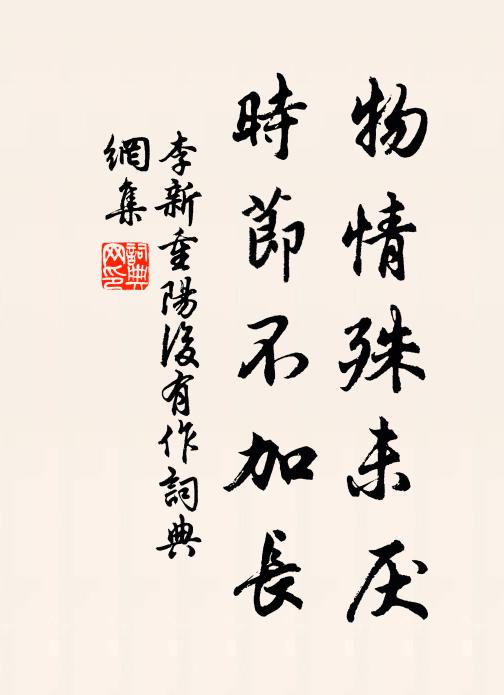 物情殊未厌
時節不加長
李新重陽後有作詞典
網集
詞典网印